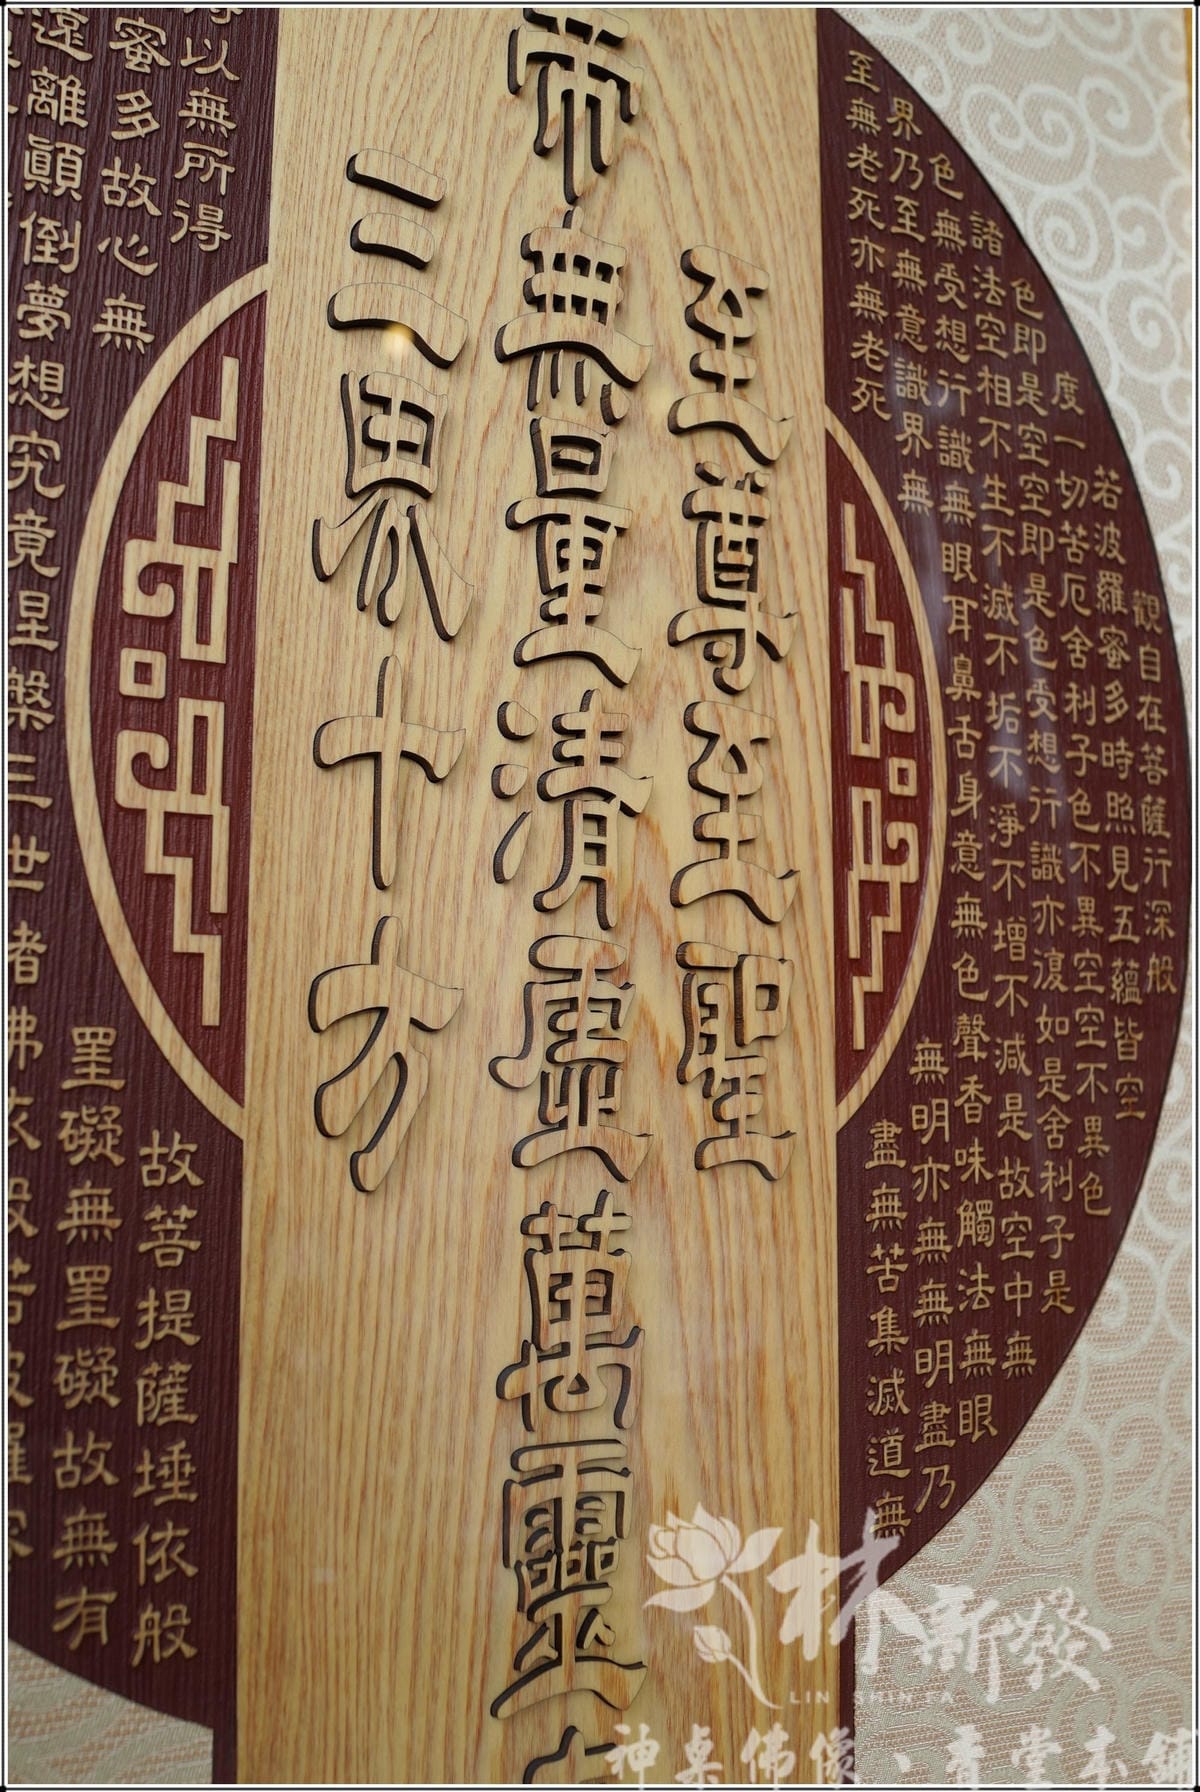 觀自在菩薩行深般
若波羅蜜多時照見五蘊皆空
度一切苦厄舍利子色不異空空不異色
色即是空空即是色受想行識亦復如是舍利子是
諸法空相不生不滅不垢不淨不增不減是故空中無
色無受想行識無眼耳鼻舌身意無色聲香味觸法無眼
界乃至無意識界無
無明亦無無明盡乃
至無老死亦無老死
盡無苦集滅道無
至尊至聖
帝無量清虛萬靈
三界十方
得以無所得
故菩提薩埵依般
蜜多故心無
罣礙無罣礙故無有
遠離顛倒夢想究竟涅槃三世者佛依般若波羅
林新發
LIN SHIN FA
神桌佛像、香堂本鋪